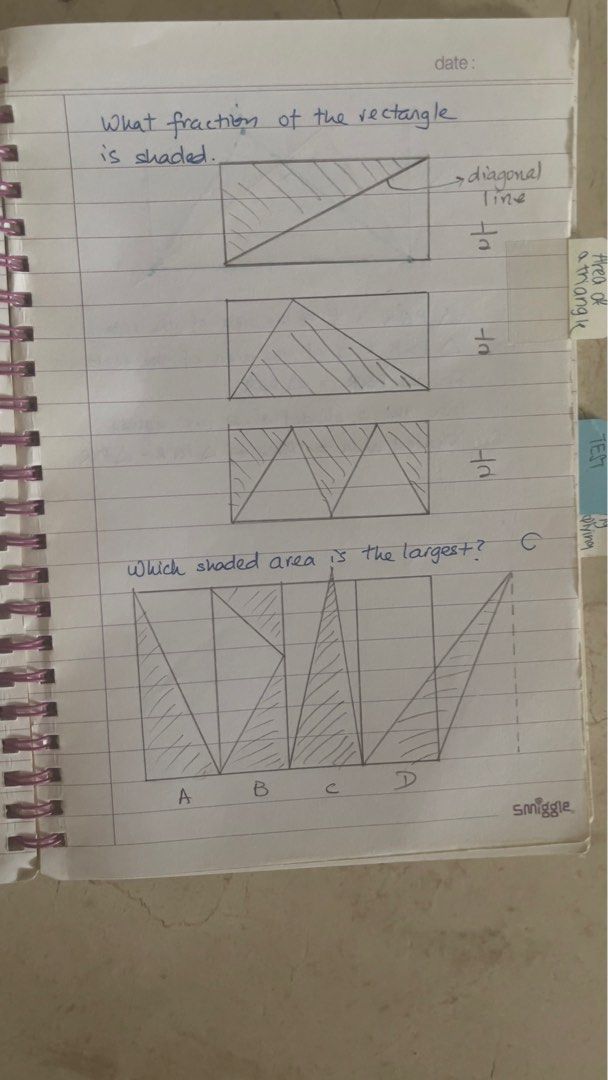 date:
What fraction of the rectangle
is shaded.
diagonal
line
1/2
Area of
a triangle
1/2
TEST
1/2
Which shaded area is the largest? C
A B C D
smiggle